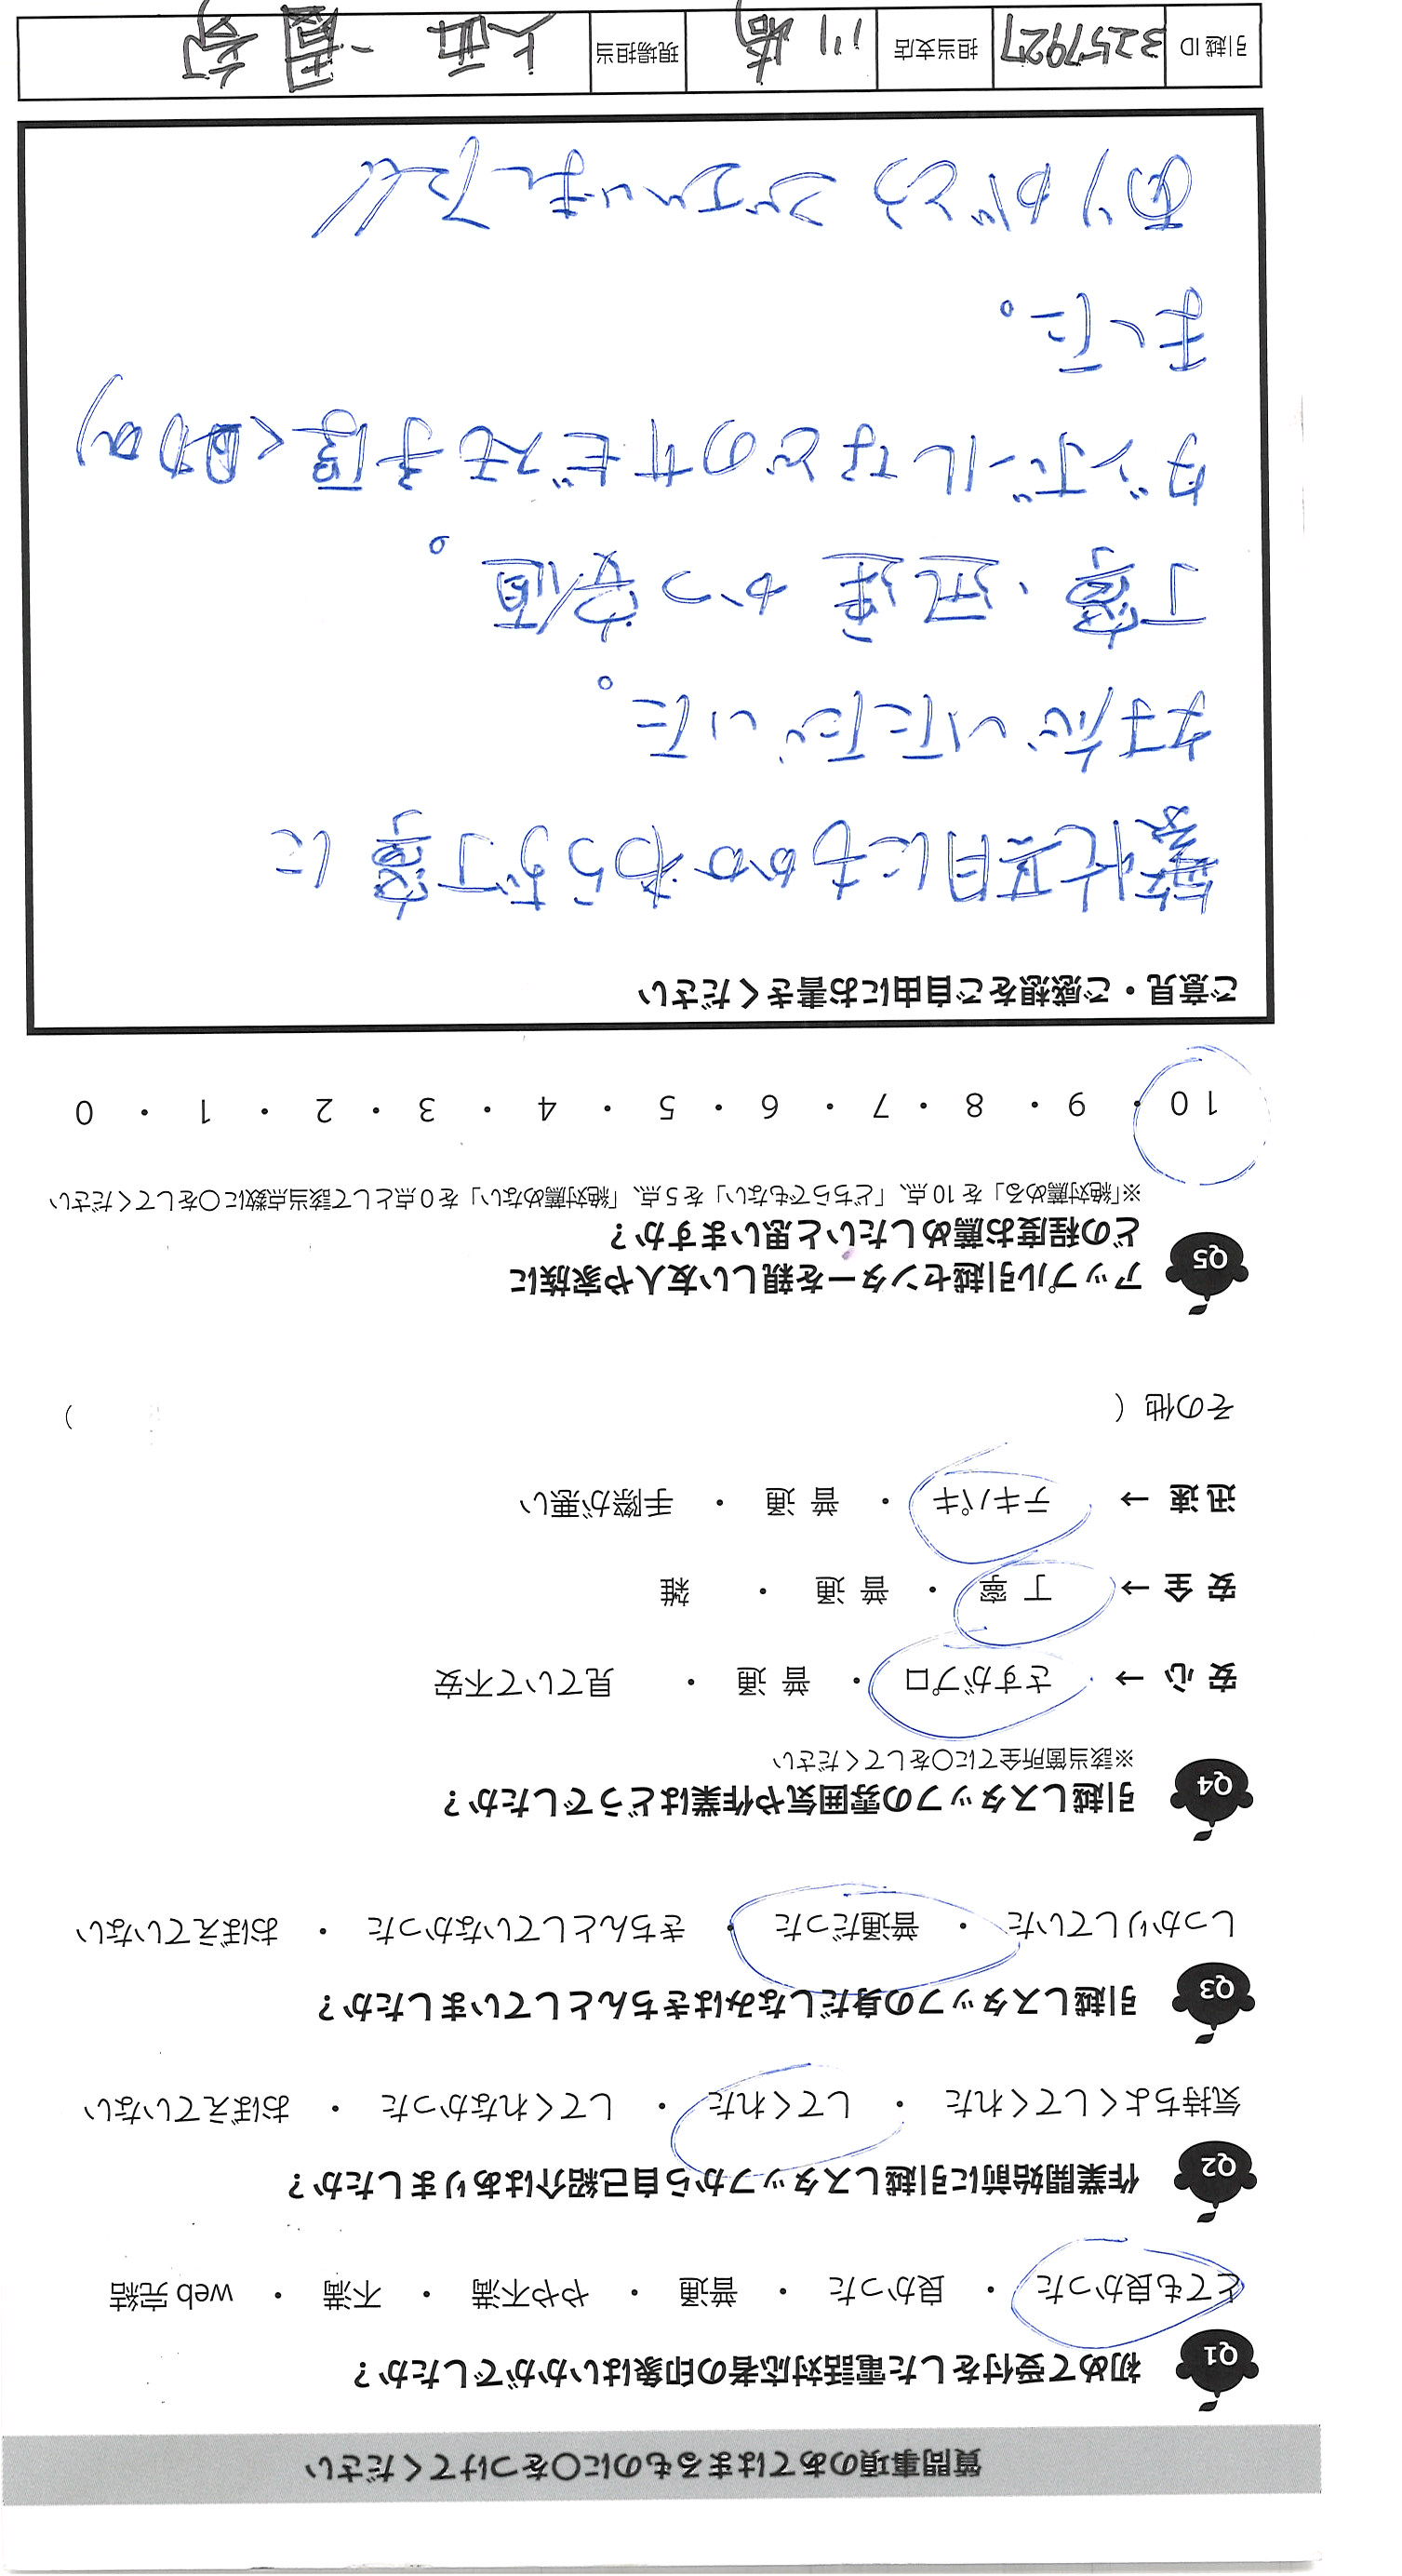 質問事項のあてはまるものに○をつけてください
Q1 初めて受付をした電話対応者の印象はいかがでしたか？
とても良かった ・ 良かった ・ 普通 ・ やや不満 ・ 不満 ・ web完結
Q2 作業開始前に引越しスタッフから自己紹介はありましたか？
気持ちよくしてくれた ・ してくれた ・ してくれなかった ・ おぼえていない
Q3 引越しスタッフの身だしなみはきちんとしていましたか？
しっかりしていた ・ 普通だった ・ きちんとしていなかった ・ おぼえていない
Q4 引越しスタッフの雰囲気や作業はどうでしたか？
※該当箇所全てに○をしてください
安心 → さすがプロ ・ 普通 ・ 見ていて不安
安全 → 丁寧 ・ 普通 ・ 雑
迅速 → テキパキ ・ 普通 ・ 手際が悪い
その他 （ ）
Q5 アップル引越センターを親しい友人や家族に
どの程度お薦めしたいと思いますか？
※「絶対薦める」を10点、「どちらでもない」を5点、「絶対薦めない」を0点として該当点数に○をしてください
10 ・ 9 ・ 8 ・ 7 ・ 6 ・ 5 ・ 4 ・ 3 ・ 2 ・ 1 ・ 0
ご意見・ご感想をご自由にお書きください
繁忙期にもかかわらず丁寧に
対応いただいた。
丁寧、迅速かつ安価。
ダンボールなどのサービスも手厚く助かり
ました。
ありがとうございました!!
引越ID 3257927 担当支店 川崎 現場担当 大西